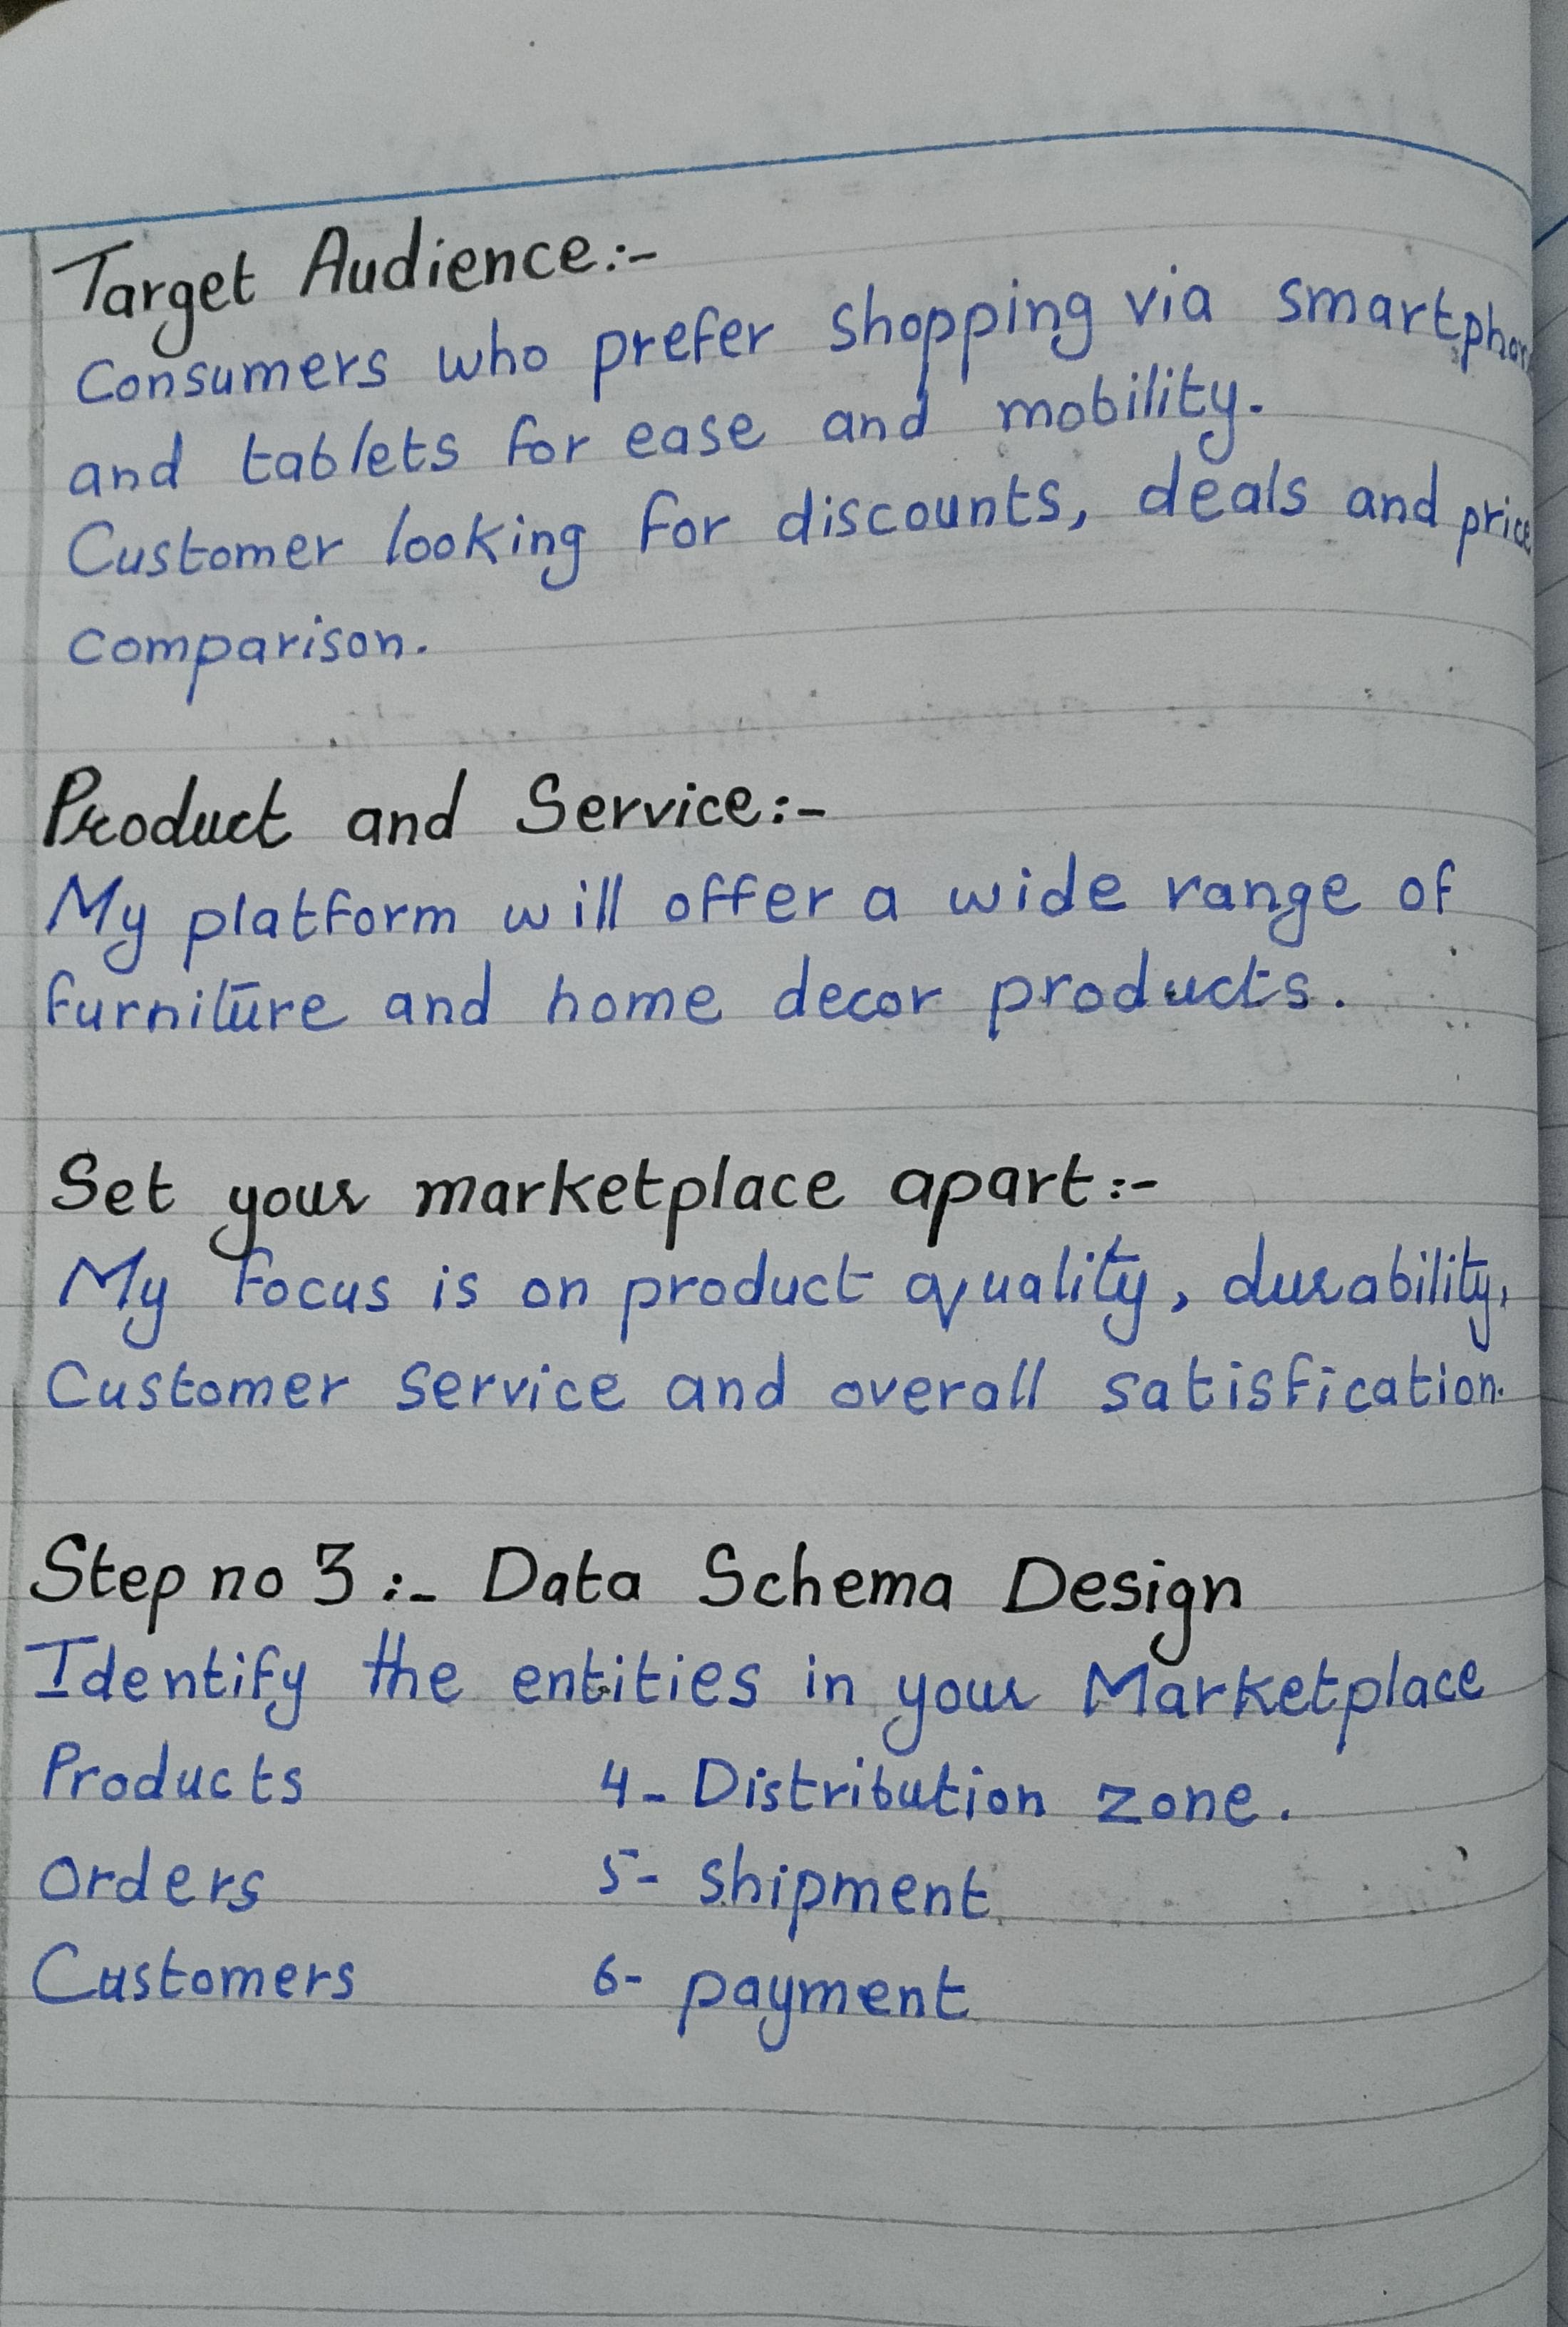 Target Audience:-
Consumers who prefer shopping via smartphon
and tablets for ease and mobility.
Customer looking for discounts, deals and price
comparison.
Product and Service:-
My platform will offer a wide range of
furniture and home decor products.
Set your marketplace apart:-
My focus is on product quality, durability,
Customer service and overall satisfication.
Step no 3:- Data Schema Design
Identify the entities in your Marketplace
Products 4- Distribution zone.
Orders 5- shipment
Customers 6- payment